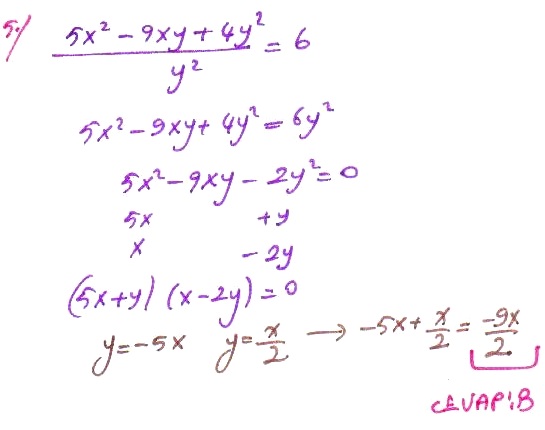 5.) (5x² - 9xy + 4y²)/y² = 6
5x² - 9xy + 4y² = 6y²
5x² - 9xy - 2y² = 0
5x +y
x -2y
(5x+y) (x-2y) = 0
y = -5x y = x/2 → -5x + x/2 = -9x/2
CEVAP:B